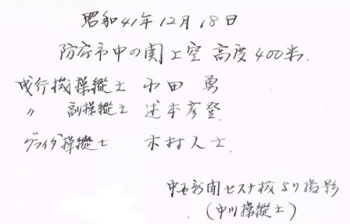 昭和41年12月18日
防府市中の関上空 高度400米.
飛行機操縦士 小田 勇
〃 副操縦士 辻本彦登
グライダ操縦士 木村人士
中国新聞セスナ機より撮影
(中川操縦士)